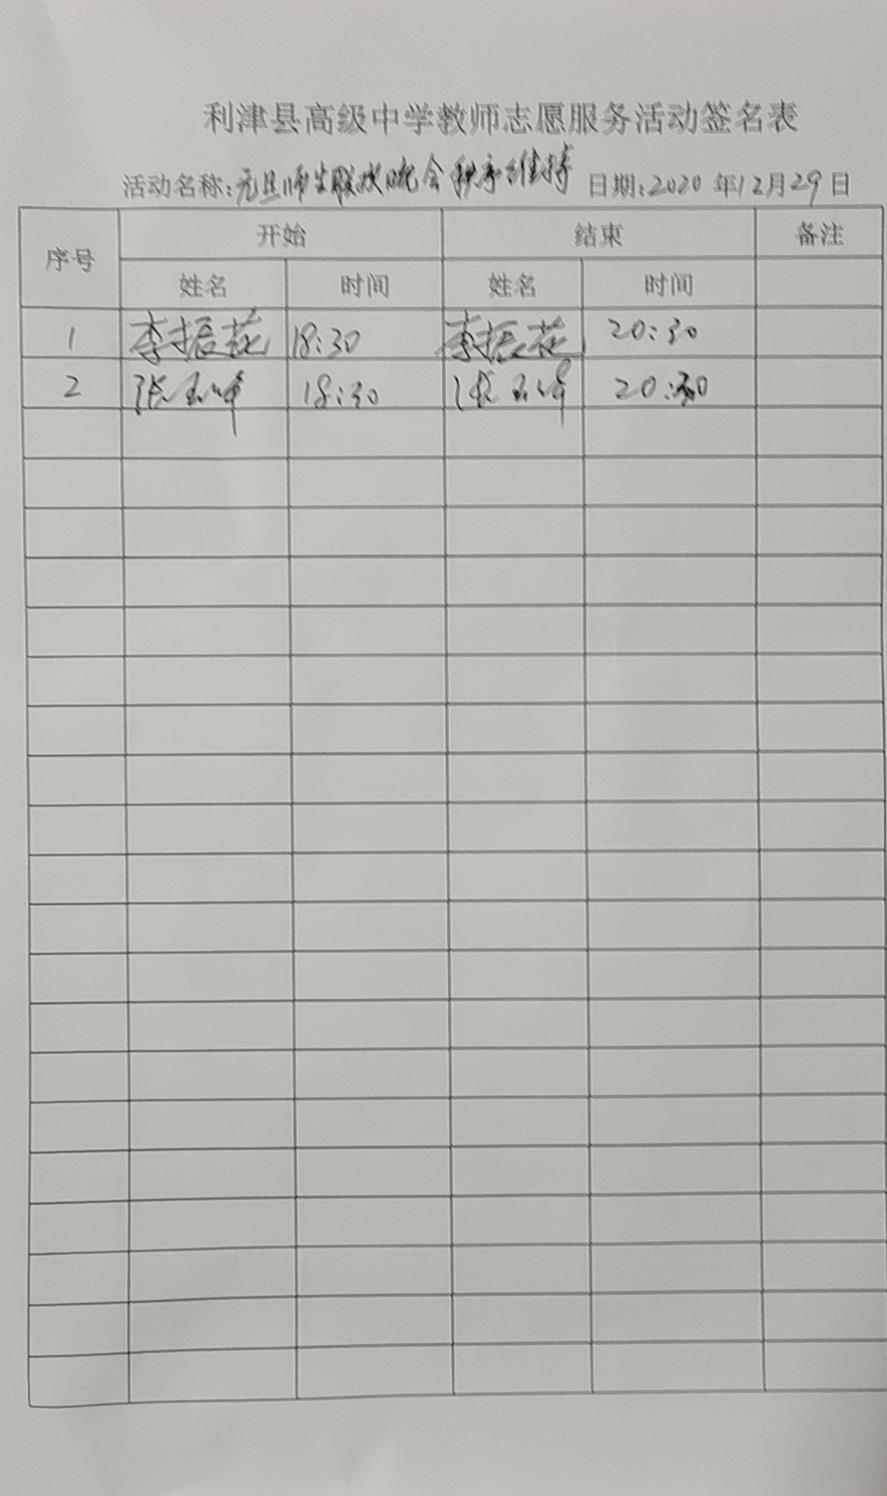 利津县高级中学教师志愿服务活动签名表
活动名称:元旦师生联欢晚会秩序维持 日期:2020 年12月29日
序号 开始 结束 备注
姓名 时间 姓名 时间
1 李振花 18:30 李振花 20:30
2 张玉峰 18:30 张玉峰 20:30